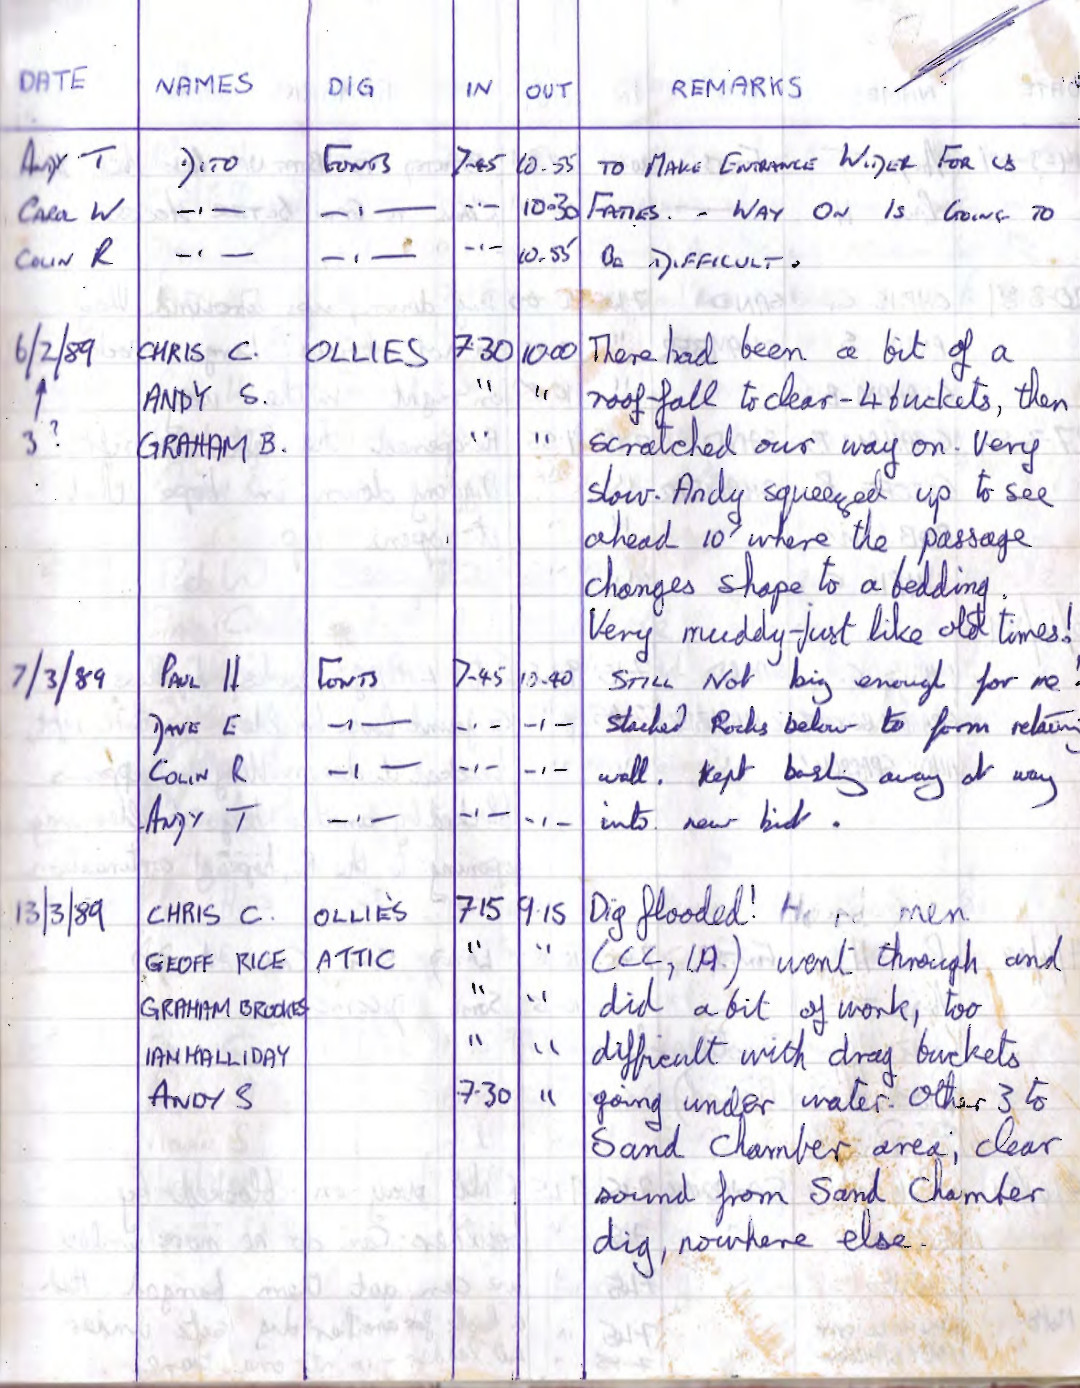 DATE NAMES DIG IN OUT REMARKS
Andy T Dito Fonts 7-45 10.55 To Make Entrance Wider For us
Carl W -"- -"- -"- 10-30 Faties. - Way On Is Going To
Colin R -"- -"- -"- 10.55 Be Difficult.
6/2/89 CHRIS C. OLLIES 730 1000 There had been a bit of a
↑ ANDY S. " " roof-fall to clear - 4 buckets, then
3? GRAHAM B. " " scratched our way on. Very
slow. Andy squeezed up to see
ahead 10' where the passage
changes shape to a bedding.
Very muddy - just like old times!
7/3/89 Paul H Fonts 7-45 10.40 Still Not big enough for me!
Dave E -"- -"- -"- stacked Rocks below to form retaining
Colin R -"- -"- -"- wall. Kept bashing away at way
Andy T -"- -"- -"- into new bit.
13/3/89 CHRIS C. OLLIES 715 9.15 Dig flooded! men
GEOFF RICE ATTIC " " (CCC, IA) went through and
GRAHAM BROOKES " " did a bit of work, too
IAN HALLIDAY " " difficult with drag buckets
ANDY S 7.30 " going under water. Other 3 to
Sand Chamber area; clear
sound from Sand Chamber
dig, nowhere else.